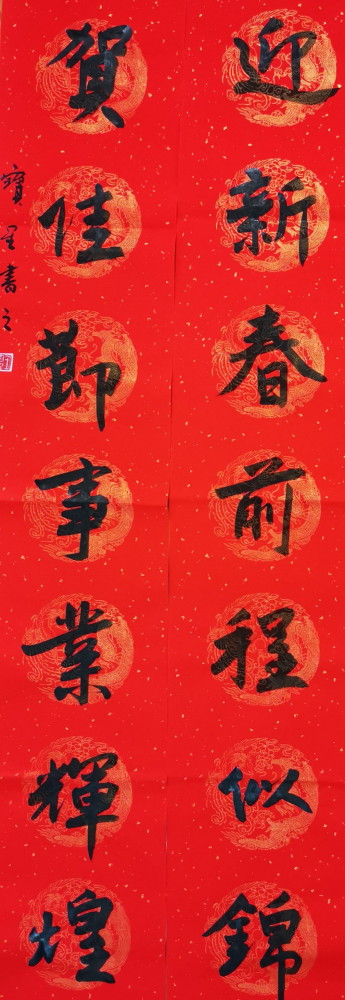 迎新春前程似錦
賀佳節事業輝煌
寶星書之